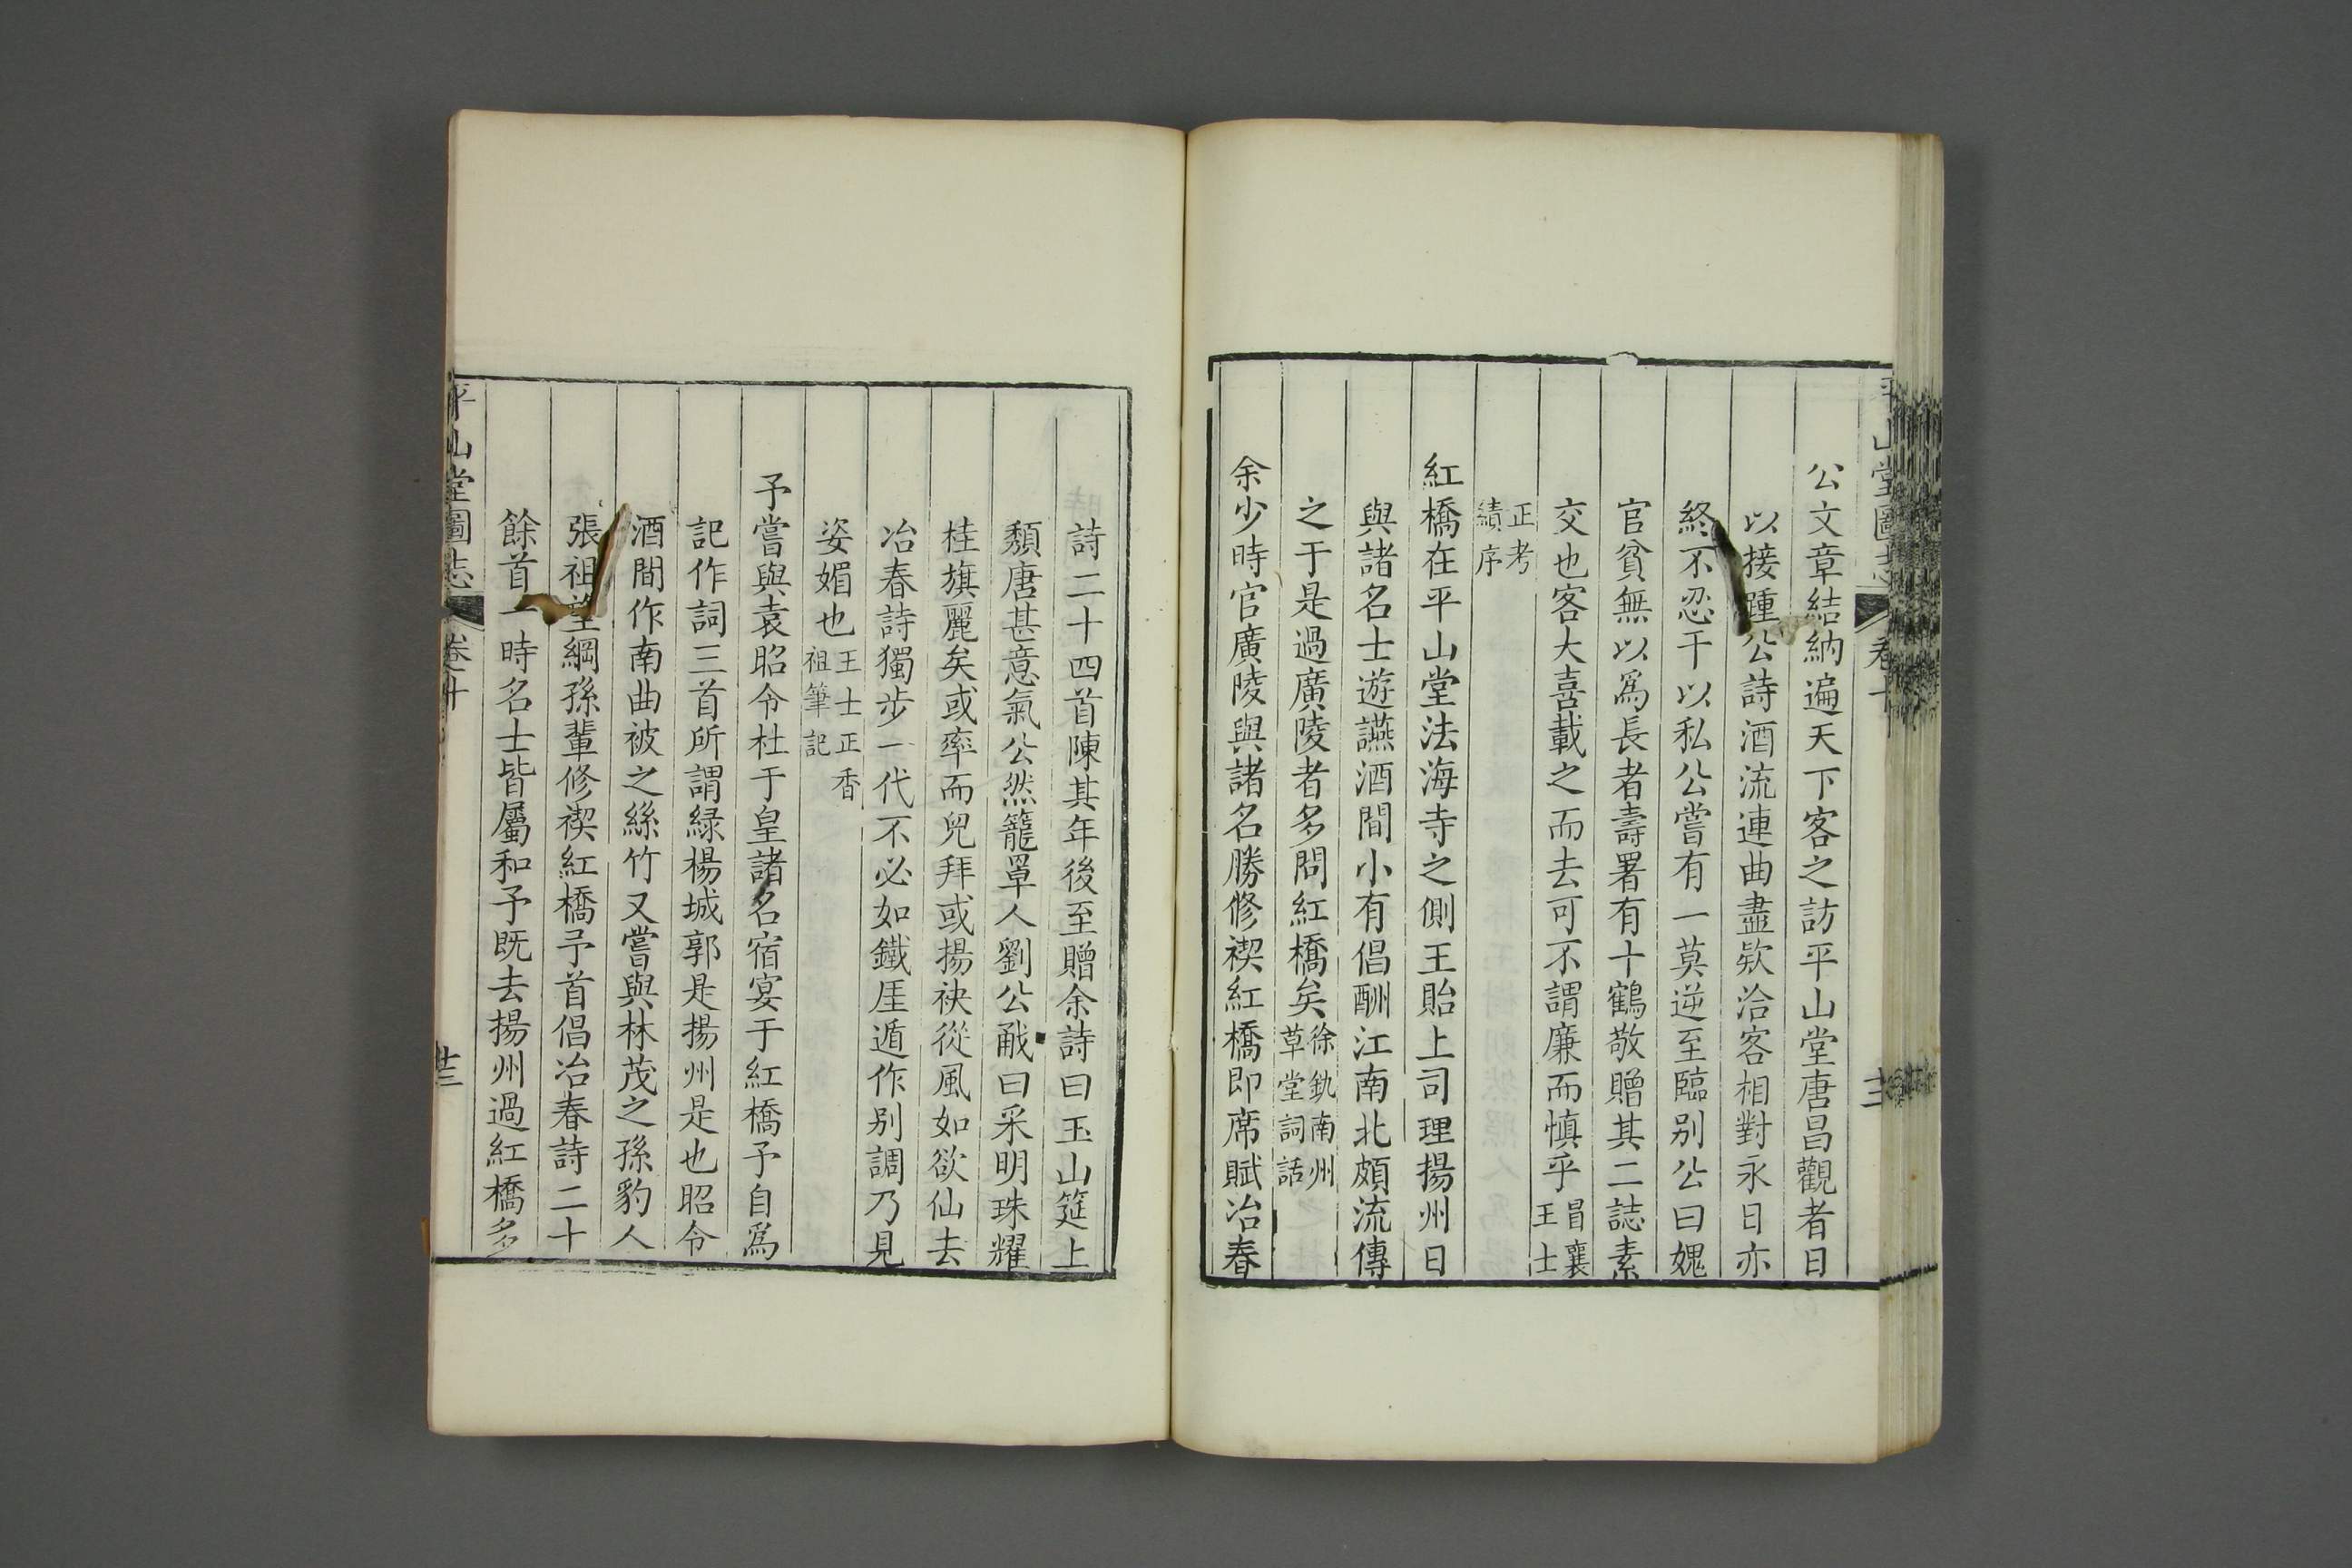 公文章結納遍天下客之訪平山堂唐昌觀者日
以接踵公詩酒流連曲盡欵洽客相對永日亦
終不忍干以私公嘗有一莫逆至臨别公曰媿
官貧無以爲長者壽署有十鶴敬贈其二誌素
交也客大喜載之而去可不謂廉而慎乎冒襄王士
正考績序
紅橋在平山堂法海寺之側王貽上司理揚州日
與諸名士遊讌酒間小有倡酬江南北頗流傳
之于是過廣陵者多問紅橋矣徐釚南州草堂詞話
余少時官廣陵與諸名勝修禊紅橋即席賦冶春
詩二十四首陳其年後至贈余詩曰玉山筵上
頹唐甚意氣公然籠罩人劉公㦷曰采明珠耀
桂旗麗矣或率而兒拜或揚袂從風如欲仙去
冶春詩獨步一代不必如鐵厓遁作别調乃見
姿媚也王士正香祖筆記
予嘗與袁昭令杜于皇諸名宿宴于紅橋予自爲
記作詞三首所謂緑楊城郭是揚州是也昭令
酒間作南曲被之絲竹又嘗與林茂之孫豹人
張祖望綱孫輩修禊紅橋予首倡冶春詩二十
餘首一時名士皆屬和予既去揚州過紅橋多
平山堂圖志
卷十
廿三